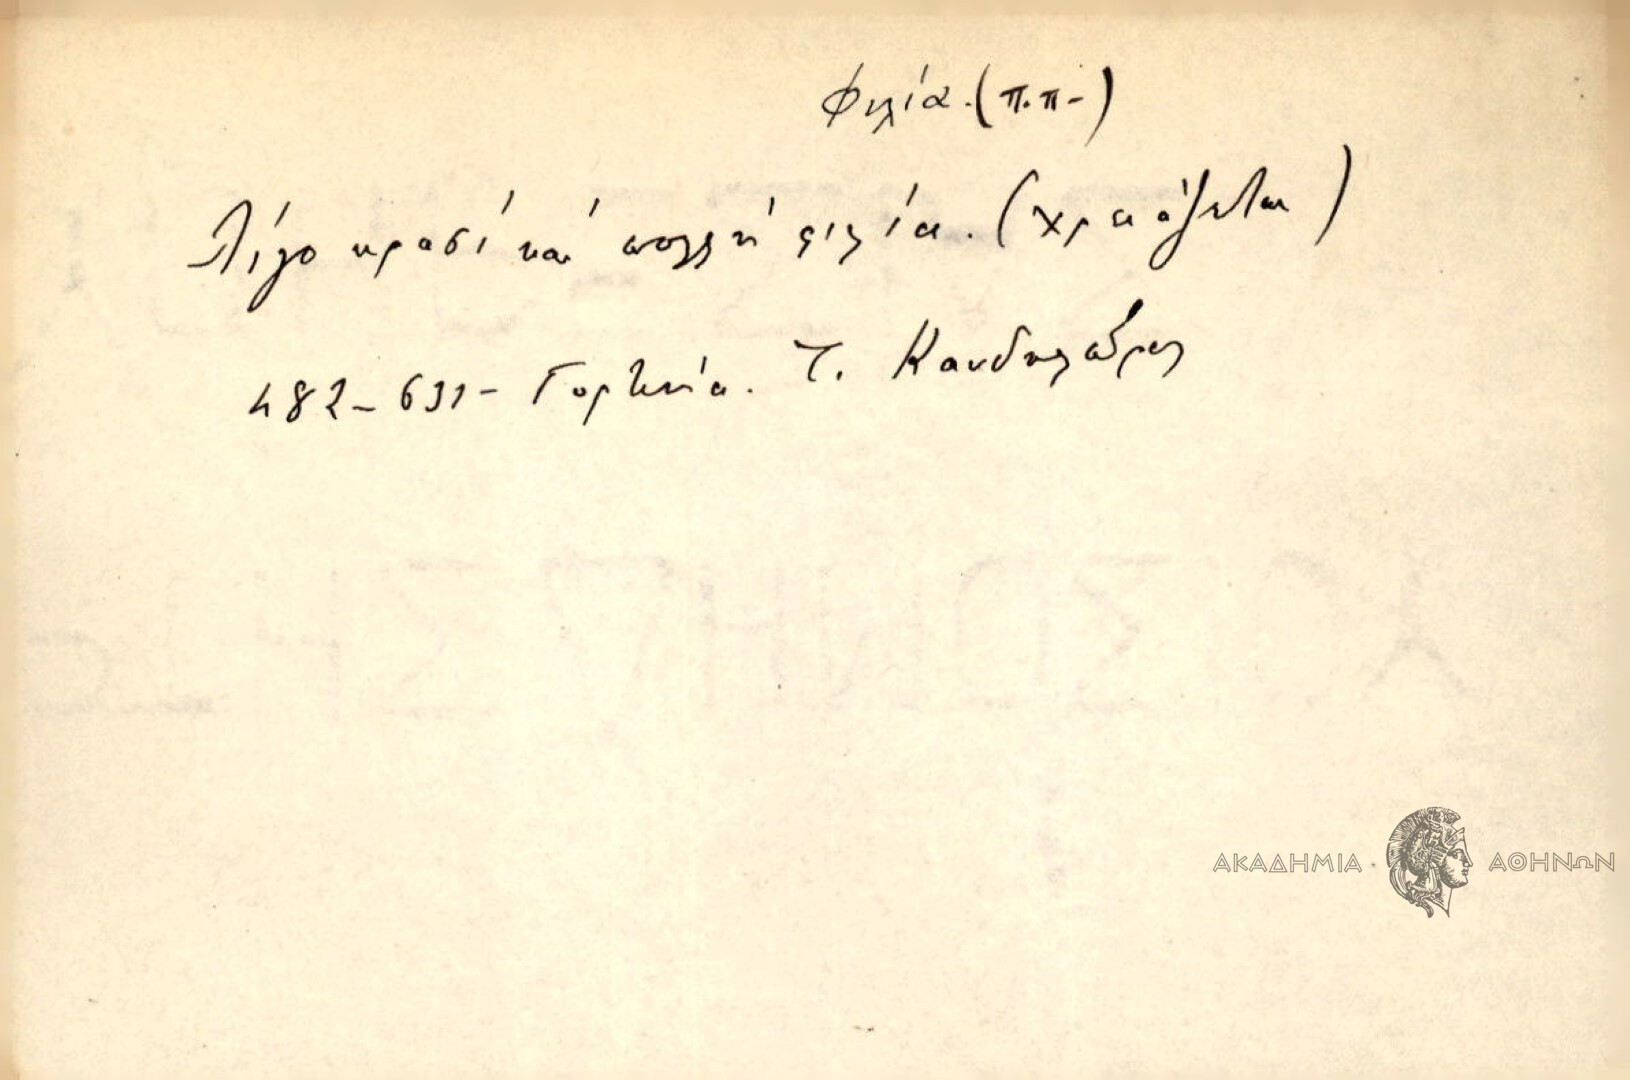 Φιλία. (π.π-)
Λίγο κρασί και πολλή φιλία. (χρειάζεται)
482-631- Γορτυνία. Τ. Κανδηλώρος
ΑΚΑΔΗΜΙΑ ΑΘΗΝΩΝ